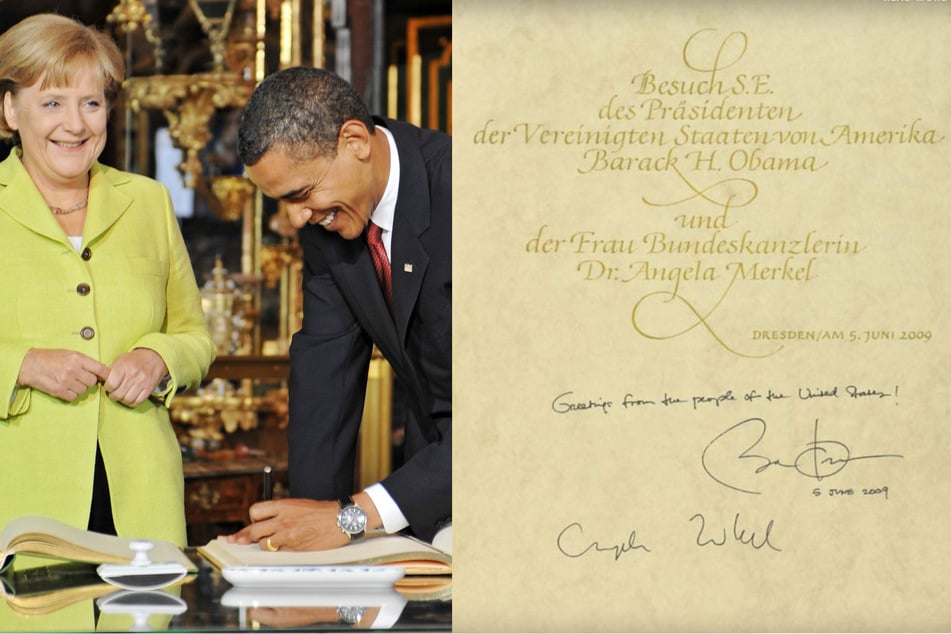 Besuch S.E.
des Präsidenten
der Vereinigten Staaten von Amerika
Barack H. Obama
und
der Frau Bundeskanzlerin
Dr. Angela Merkel
DRESDEN/AM 5. JUNI 2009
Greetings from the people of the United States!
5 JUNE 2009
Angela Merkel